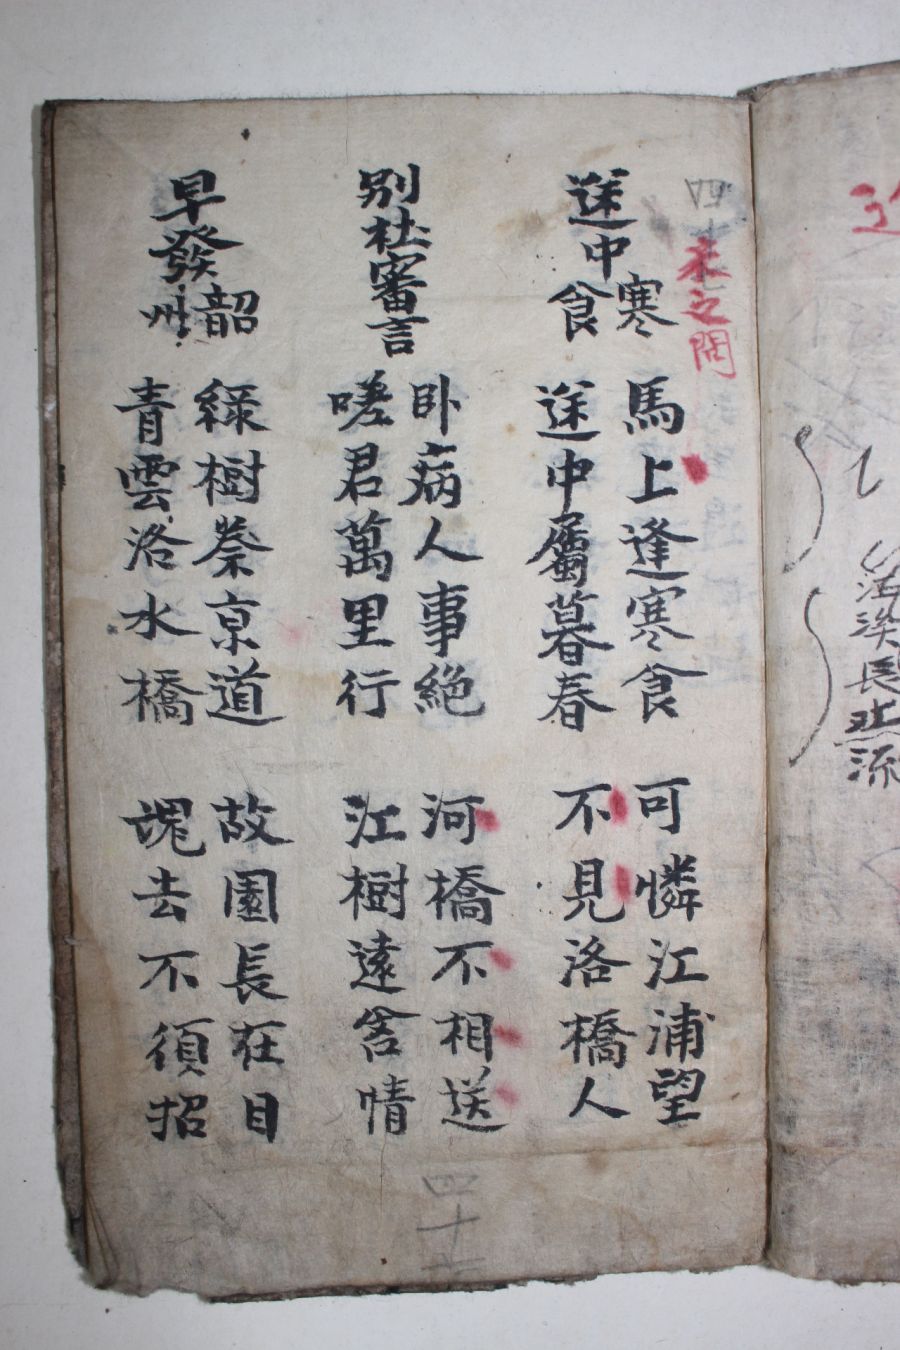 宋之問
途中寒食
馬上逢寒食
途中屬暮春
可憐江浦望
不見洛橋人
別杜審言
卧病人事絶
嗟君萬里行
河橋不相送
江樹遠含情
早發韶州
綠樹秦京道
青雲洛水橋
故園長在目
魂去不須招
四十